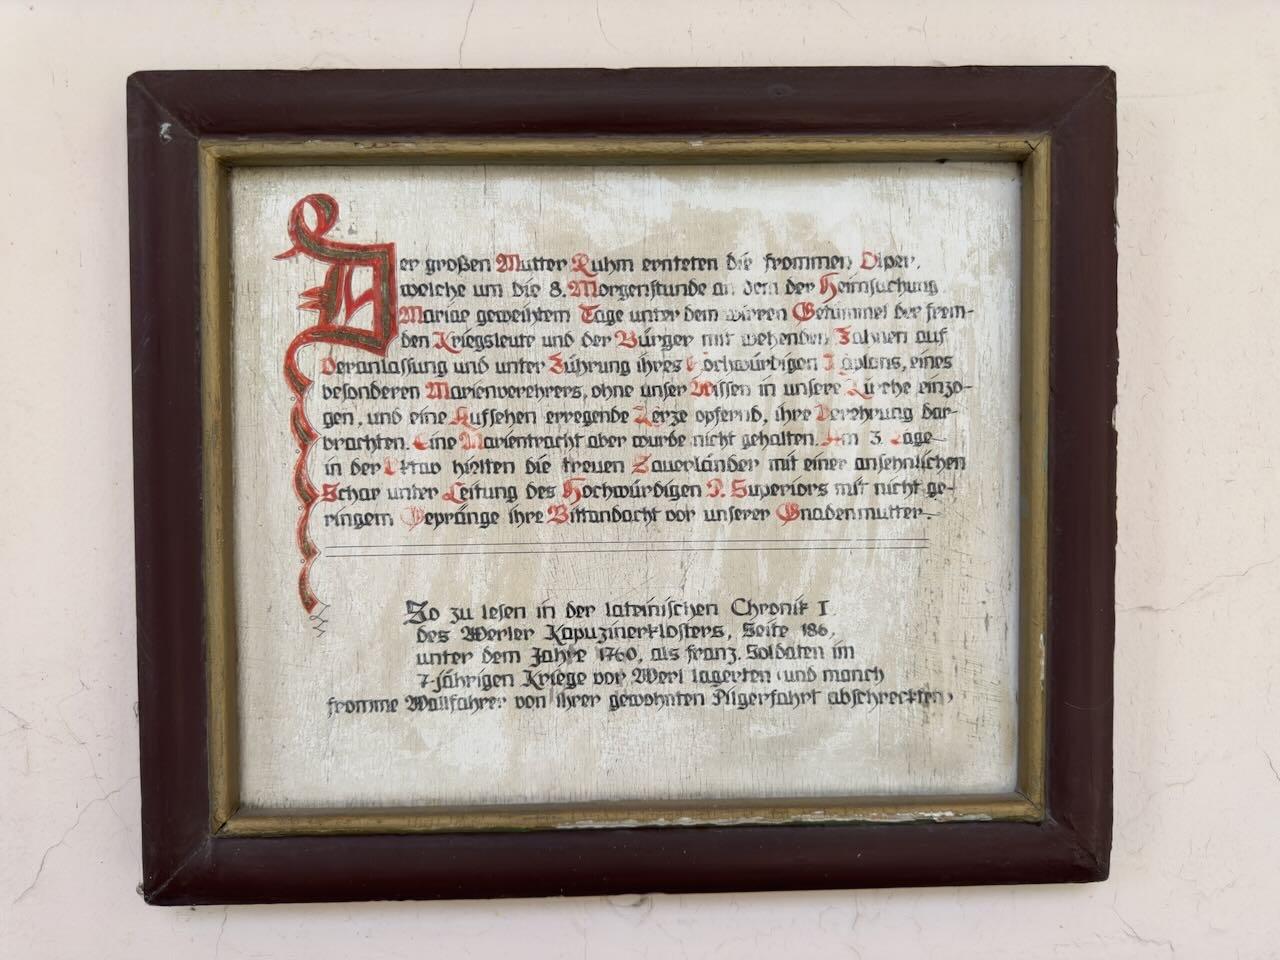 Der großen Mutter Ruhm ernteten die frommen Olper,
welche um die 8. Morgenstunde an dem der Heimsuchung
Mariae geweihtem Tage unter dem wirren Getümmel der frem-
den Kriegsleute und der Bürger mit wehenden Fahnen auf
Veranlassung und unter Führung ihres Hochwürdigen Kaplans, eines
besonderen Marienverehrers, ohne unser Wissen in unsere Kirche einzo-
gen, und eine Aufsehen erregende Kerze opfernd, ihre Verehrung dar-
brachten. Eine Marientracht aber wurde nicht gehalten. Am 3. Tage
in der Oktav hielten die treuen Sauerländer mit einer ansehnlichen
Schar unter Leitung des Hochwürdigen P. Superiors mit nicht ge-
ringem Gepränge ihre Bittandacht vor unserer Gnadenmutter.
So zu lesen in der lateinischen Chronik I
des Werler Kapuzinerklosters, Seite 186,
unter dem Jahre 1760, als franz. Soldaten im
7-jährigen Kriege vor Werl lagerten (und manch
fromme Wallfahrer von ihrer gewohnten Pilgerfahrt abschreckten)